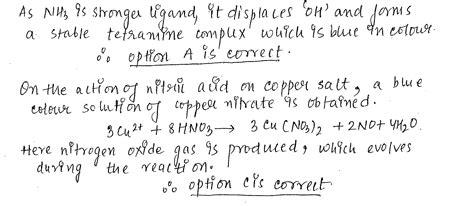 As NH3 is stronger ligand, it displaces 'OH' and forms
a stable tetramine complex which is blue in colour.
∴ option A is correct.
On the action of nitric acid on copper salt, a blue
colour solution of copper nitrate is obtained.
3Cu²⁺ + 8HNO₃ → 3 Cu (NO₃)₂ + 2NO + 4H₂O.
Here nitrogen oxide gas is produced, which evolves
during the reaction.
∴ option C is correct